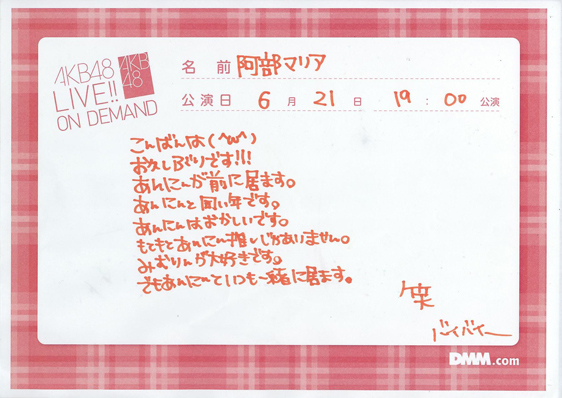 AKB48
LIVE!!
ON DEMAND
AKB
48
名 前 阿部マリア
公演日 6月21日 19:00公演
こんばんは(^ω^)
お久しぶりです!!!
あんにんが前に居ます。
あんにんと同い年です。
あんにんはおかしいです。
もてもてあんにん推しじゃありません。
みむりんが大好きです。
でもあんにんといつも一緒に居ます。
笑
バイバイー
DMM.com